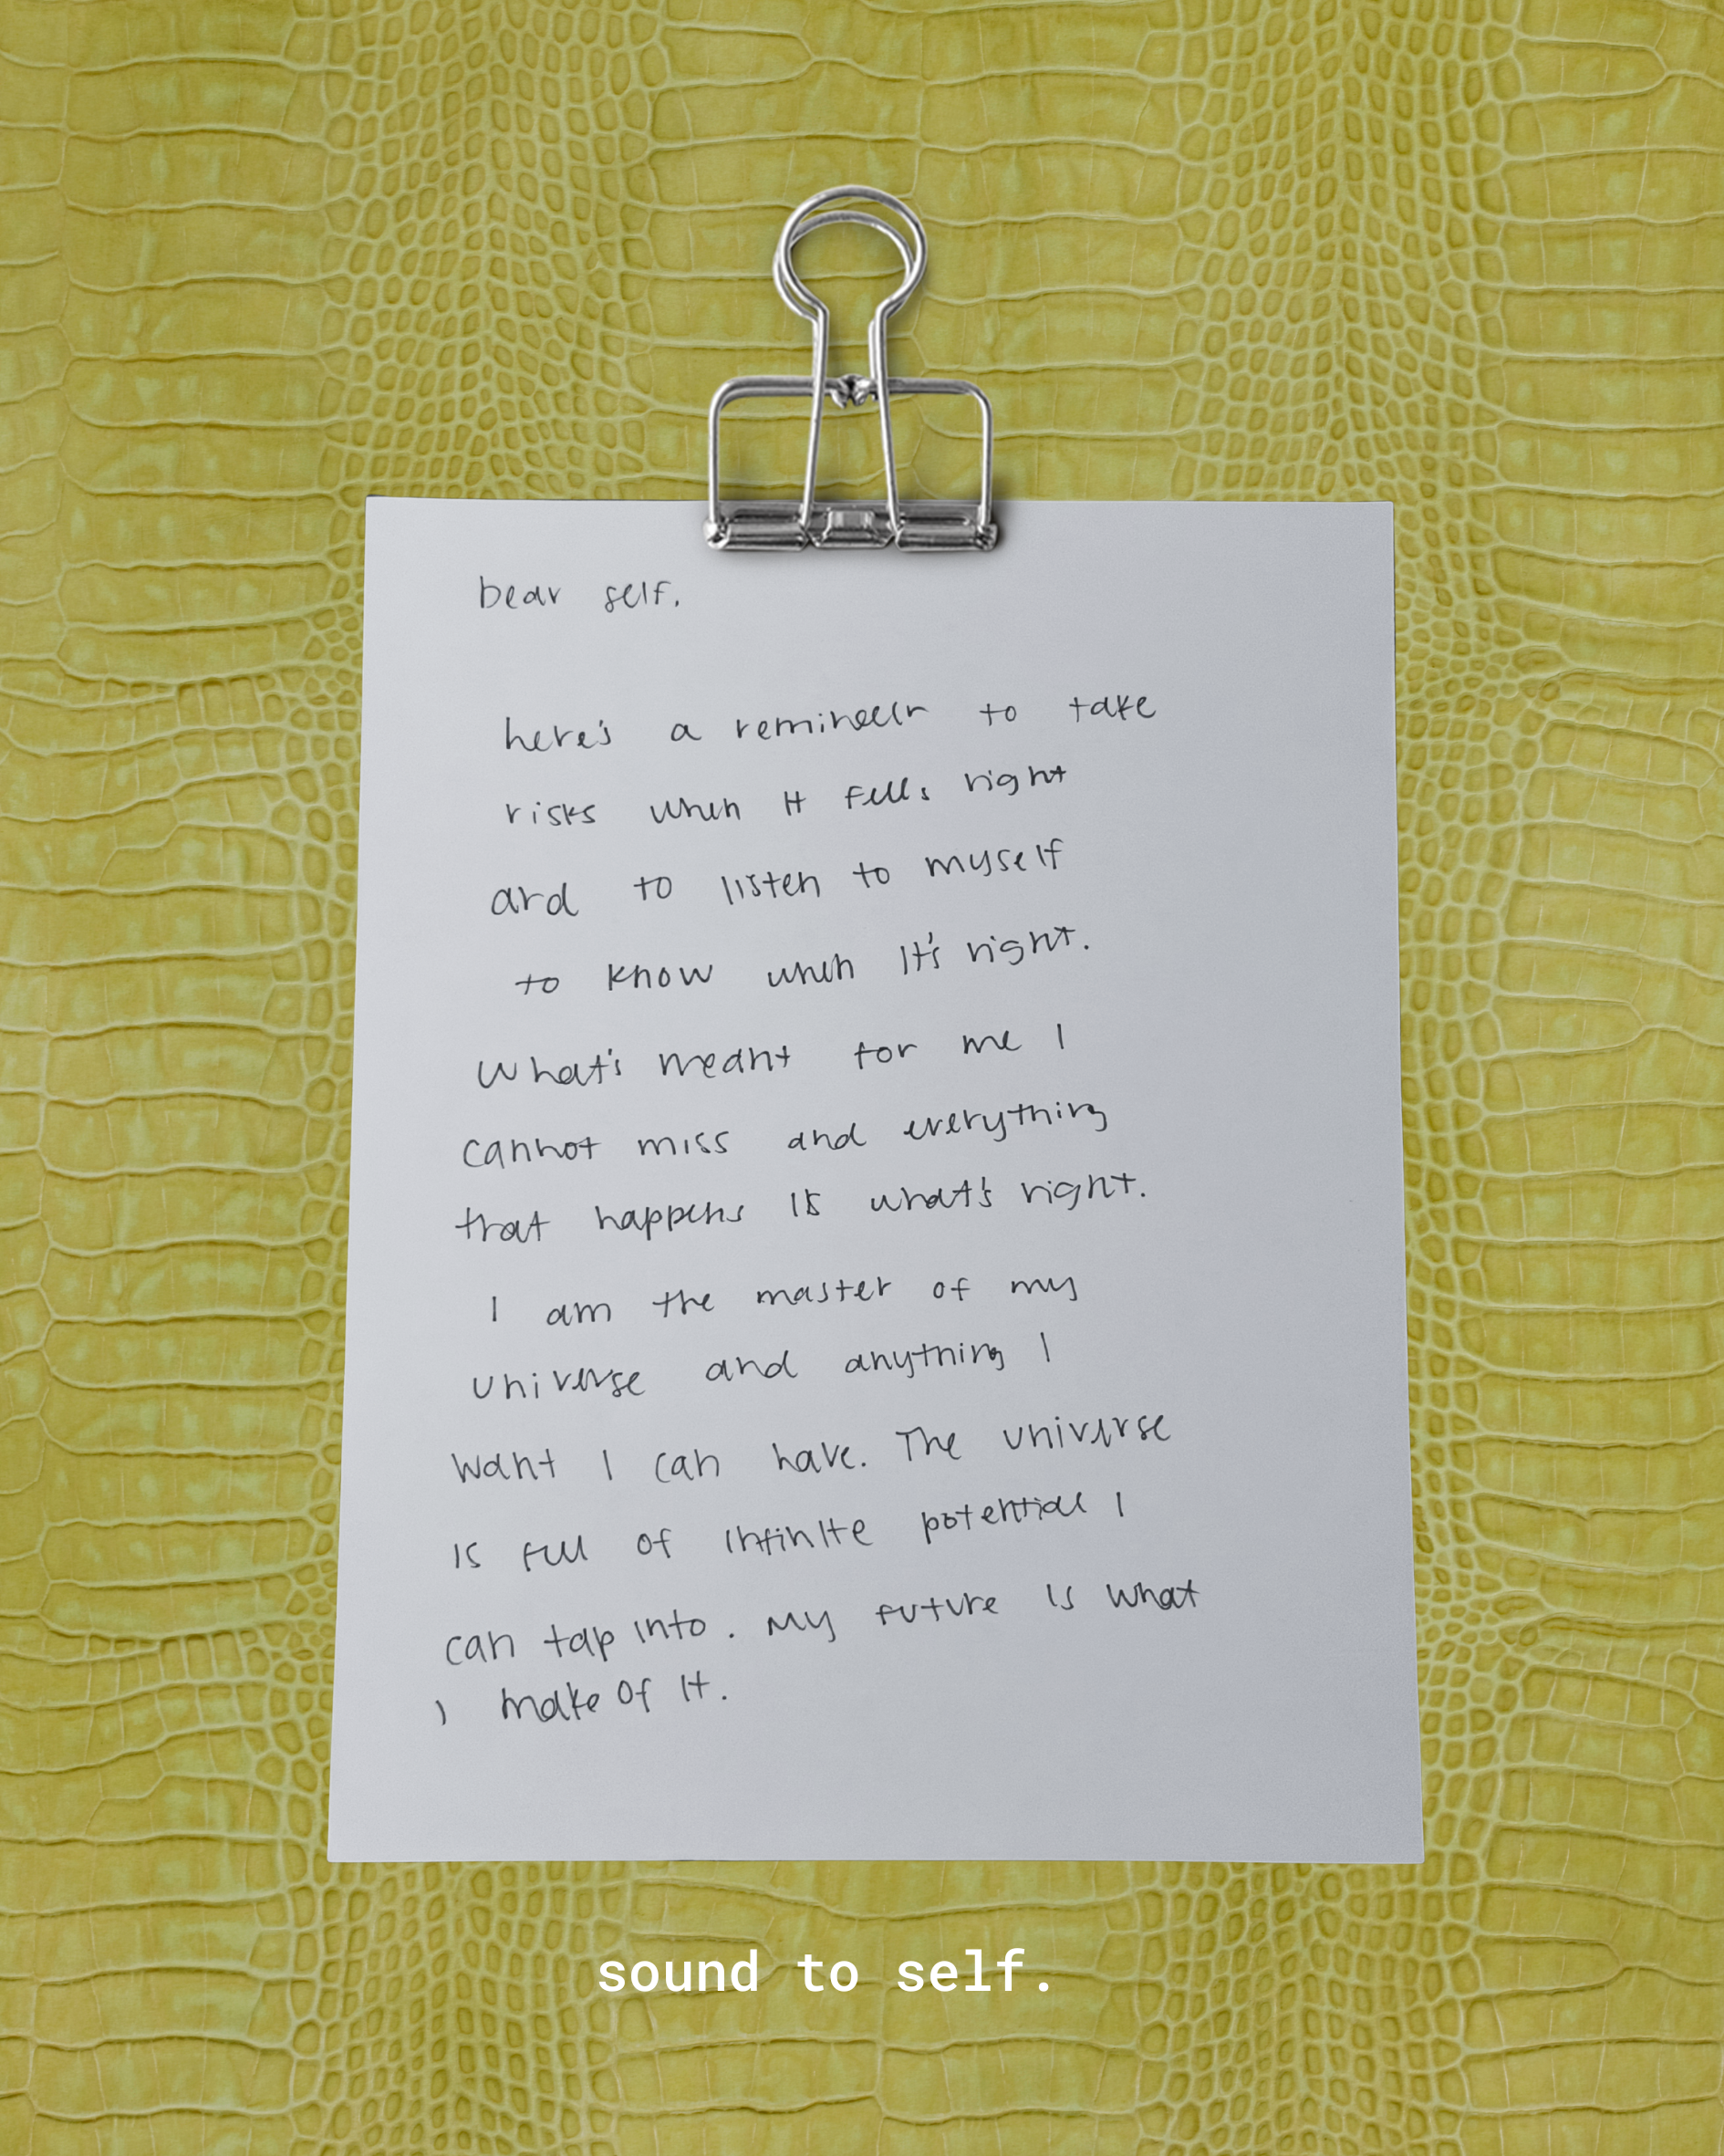 Dear self,
here's a reminder to take
risks when it feels right
and to listen to myself
to know when it's right.
What's meant for me I
cannot miss and everything
that happens is what's right.
I am the master of my
universe and anything I
want I can have. The universe
is full of infinite potential I
can tap into. My future is what
I make of it.
sound to self.